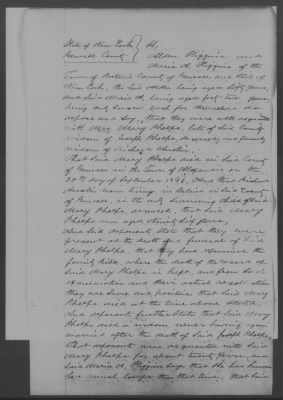 State of New York } ss,
Genesee County } Alden Higgins and
Maria A. Higgins of the
Town of Batavia County of Genesee and State of
New York, the said Alden being aged sixty years,
and said Maria A. being aged forty two years,
being duly sworn each for themselves do
depose and say, that they were well acquainted
with Mrs. Mary Phelps, late of said County
widow of Joseph Phelps, deceased, and formerly
widow of Richard Austin.
That said Mary Phelps died in said County
of Genesee in the town of Alexander on the
day of September 186
Austin now living in Batavia in said County
of Genesee, is the only surviving child of said
Mary Phelps deceased, that said Mary
Phelps was aged Sixty years,
And said deponents state that they were
present at the death and funeral of said
Mary Phelps, that they have examined the
family Bible, where the death of the record of
said Mary Phelps is kept, and from such
examination and their actual recollection
they are sure and positive that said Mary
Phelps died at the time above stated.
And deponents further state that said Mary
Phelps died a widow, never having
married after the death of said Joseph Phelps.
That deponents were acquainted with said
Mary Phelps for about twenty years, and
said Maria A. Higgins says that she has known
her much longer than that time. That said